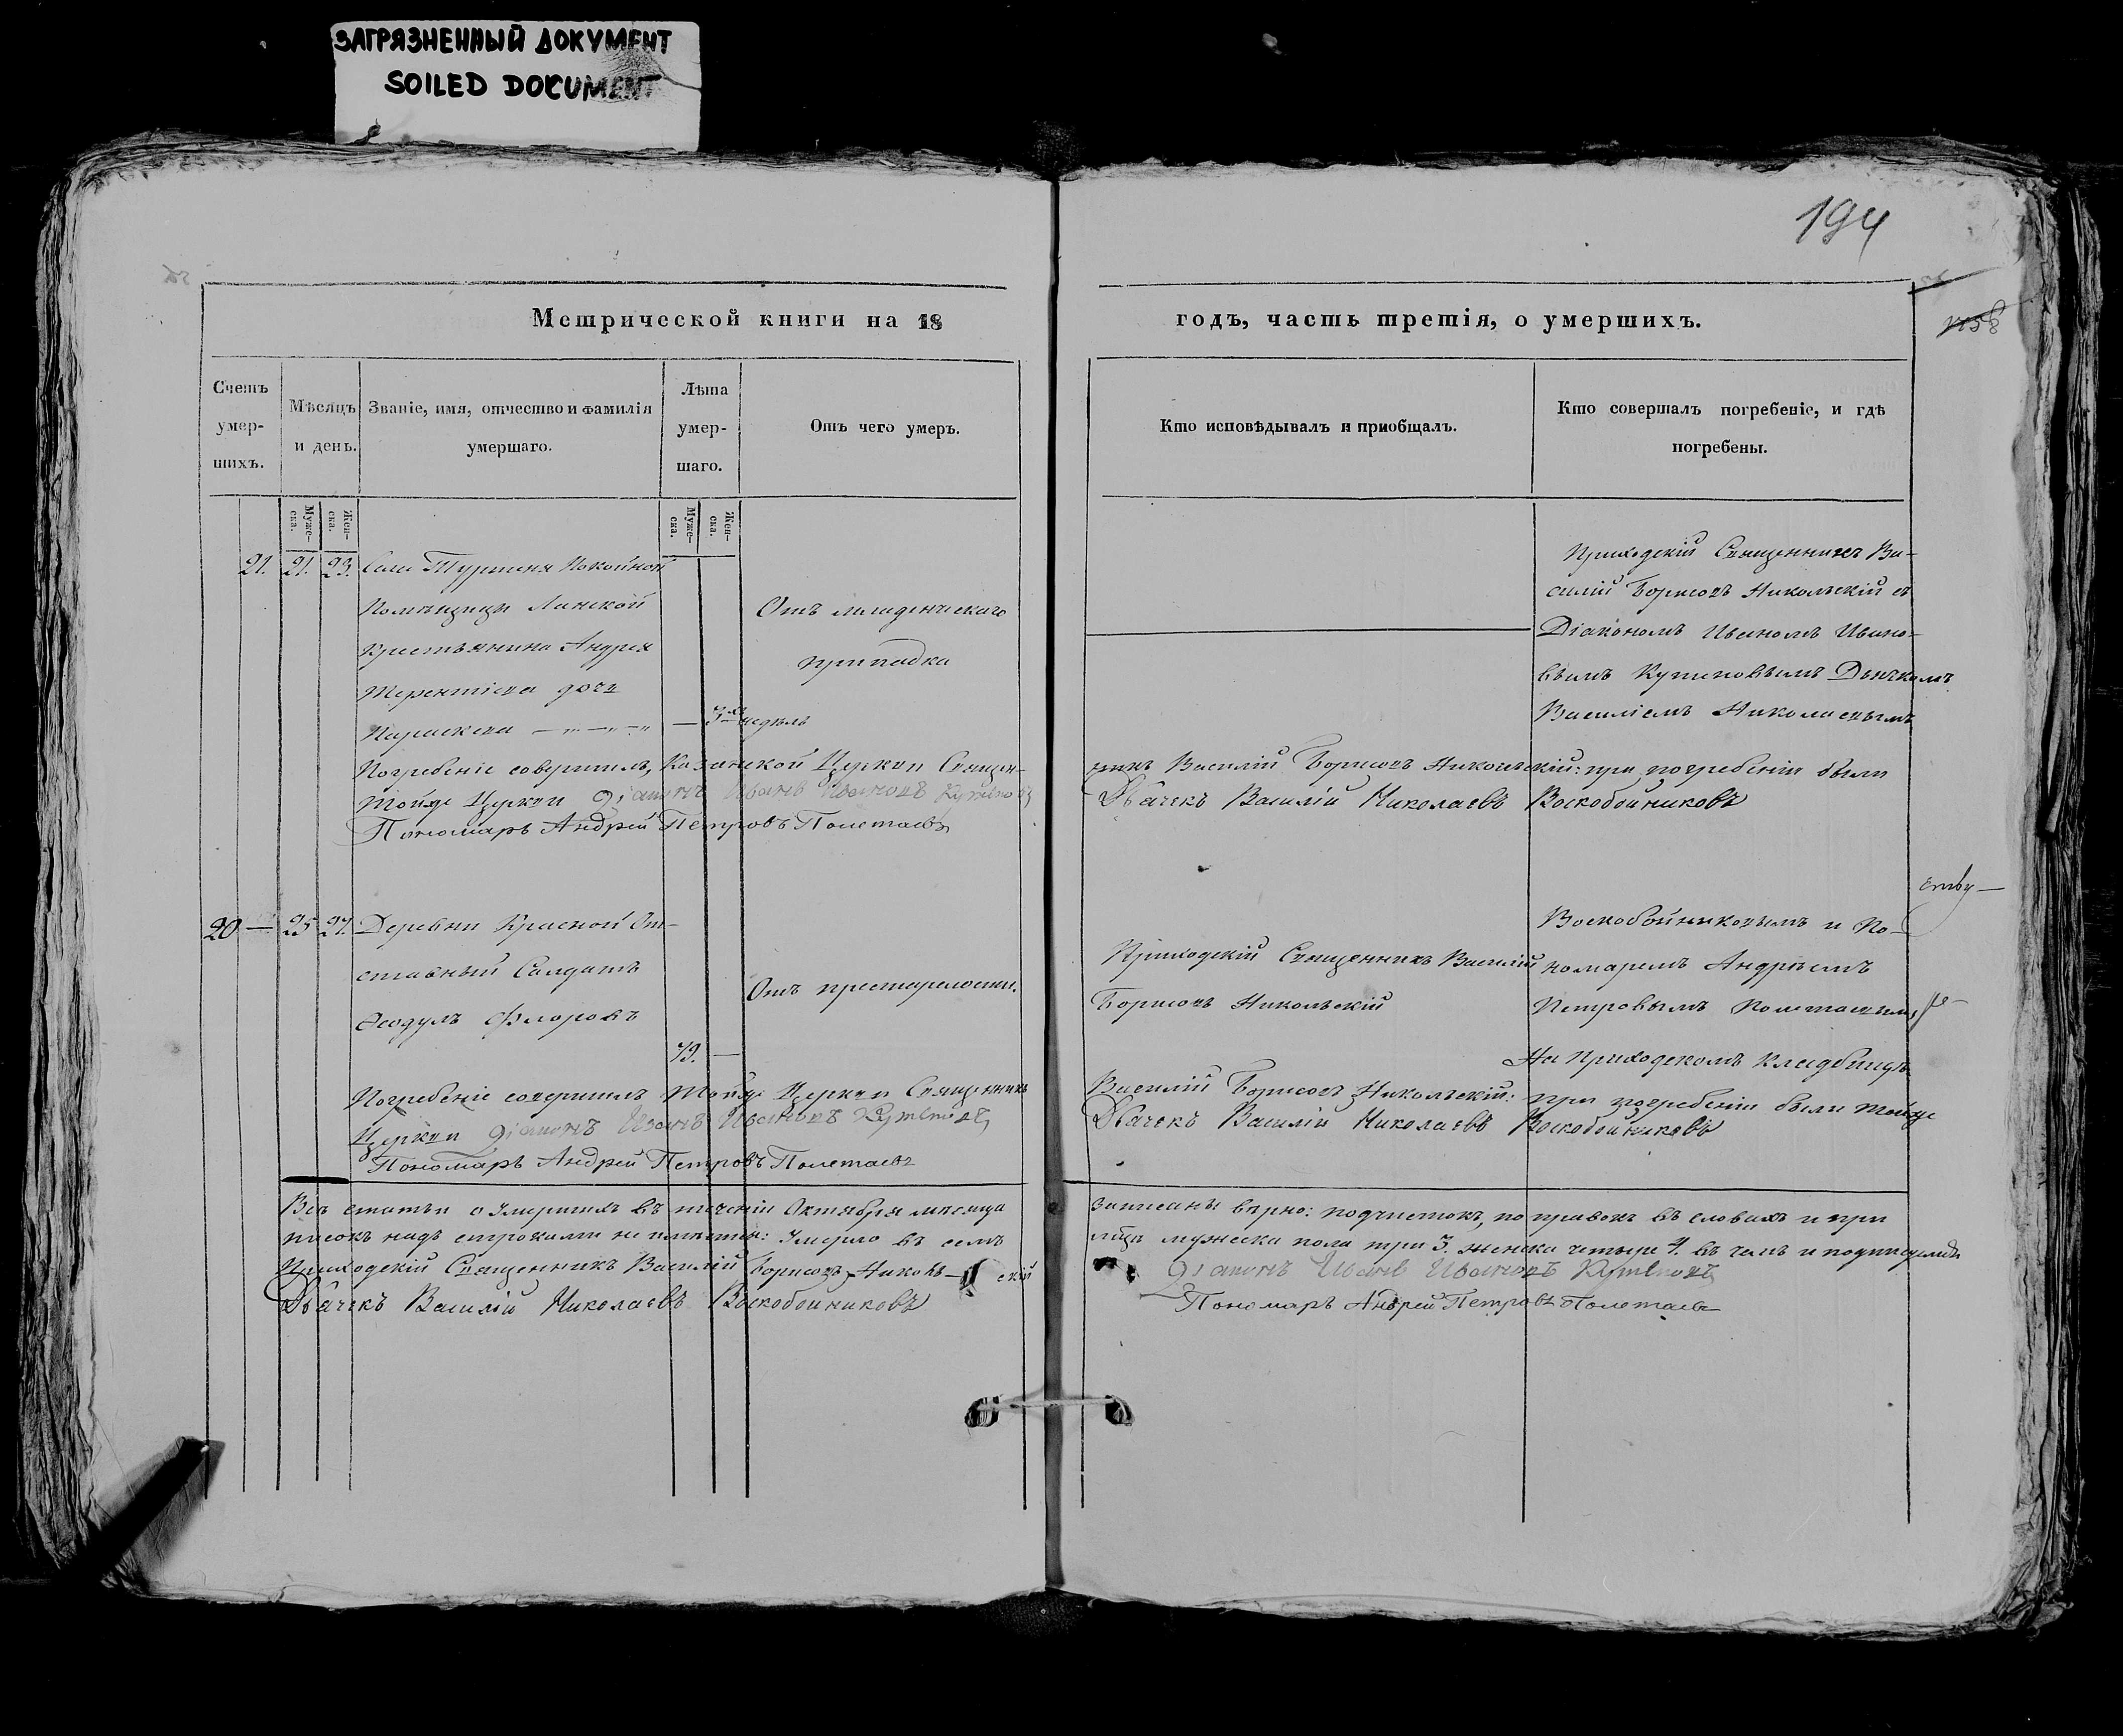 ЗАГРЯЗНЕННЫЙ ДОКУМЕНТ
SOILED DOCUMENT
194
Метрической книги на 18
годъ, часть третія, о умершихъ.
Счетъ умер-шихъ.
Мѣсяцъ и день.
Званіе, имя, отчество и фамилія умершаго.
Лѣта умер-шаго.
Отъ чего умеръ.
Кто исповѣдывалъ и приобщалъ.
Кто совершалъ погребеніе, и гдѣ погребены.
Муже-ска.
Жен-ска.
Муже-ска.
Жен-ска.
21. 21. 23. Села Покойной
Помѣщицы Ланской
Крестьянина Андрея
Терентіева дочь
Параскева
3хъ недѣль
Отъ младенческаго
припадка
Приходскій Священникъ Ва-
силій Борисовъ Никольскій съ
Діакономъ Иваномъ Ивано-
вымъ Дьячкомъ
Василіемъ Николаевымъ
Погребеніе совершилъ, Казанской Церкви Священ-
никъ Василій Борисовъ Никольскій: при погребеніи были
Тойже Церкви Діаконъ Иванъ Ивановъ
Дьячекъ Василій Николаевъ Воскобойниковъ
Пономарь Андрей Петровъ Полетаевъ
20 — 25 27. Деревни Красной От-
ставный Солдатъ
Ѳеодулъ Флоровъ
79. —
Отъ престарелости.
Приходскій Священникъ Василій
Борисовъ Никольскій
Воскобойниковымъ и По-
номаремъ Андрѣемъ
Петровымъ Полетаевымъ
На Приходскомъ Кладбищѣ
Погребеніе совершилъ Тойже Церкви Священникъ
Василій Борисовъ Никольскій: при погребеніи были тойже
Церкви Діаконъ Иванъ Ивановъ
Дьячекъ Василій Николаевъ Воскобойниковъ
Пономарь Андрей Петровъ Полетаевъ
Всѣ статьи о Умершихъ въ теченіи Октября месяца
записаны вѣрно: подчистокъ, поправокъ въ словахъ и при
писокъ надъ строками не имѣется: Умерло въ семъ
мужеска пола три 3. женска четыре 4. въ чемъ и подписуемся
Приходскій Священникъ Василій Борисовъ Никольскій
Діаконъ Иванъ Ивановъ
Дьячекъ Василій Николаевъ Воскобойниковъ
Пономарь Андрей Петровъ Полетаевъ